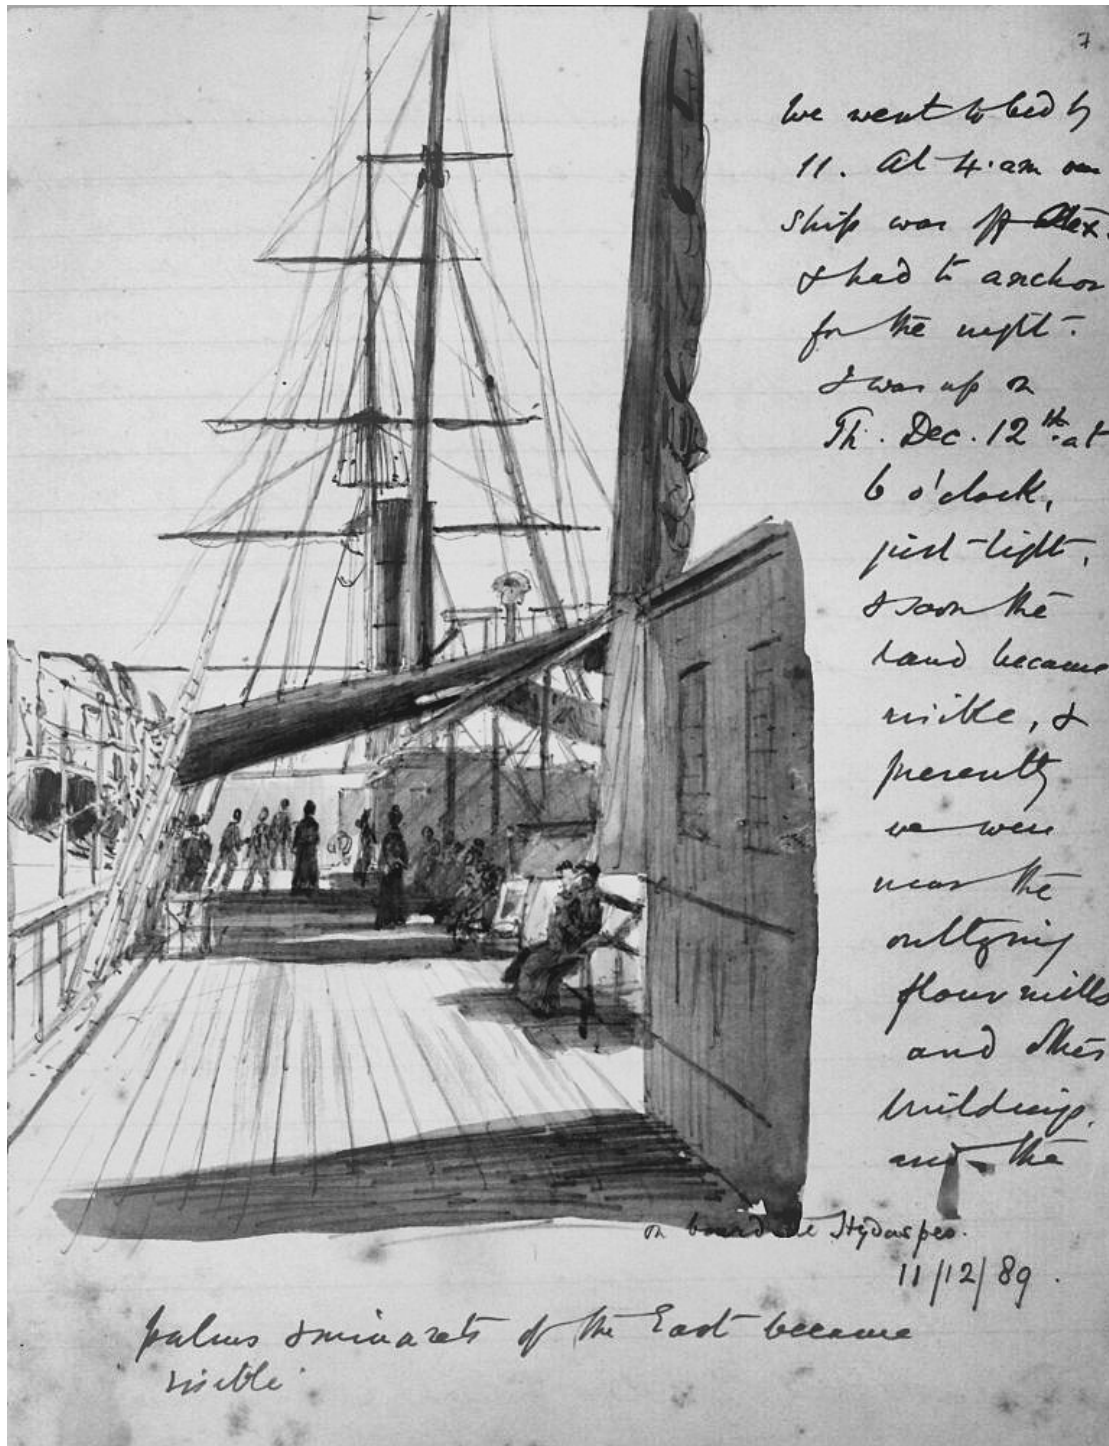 7
we went to bed by
11. At 4.am our
ship was off Alex.
& had to anchor
for the night.
I was up on
Th. Dec. 12th. at
6 o'clock,
just light,
& soon the
land became
visible, &
presently
we were
near the
outlying
flour mills
and other
buildings.
and the
on board the Hydaspes.
11/12/89.
palms & minarets of the East became
visible.